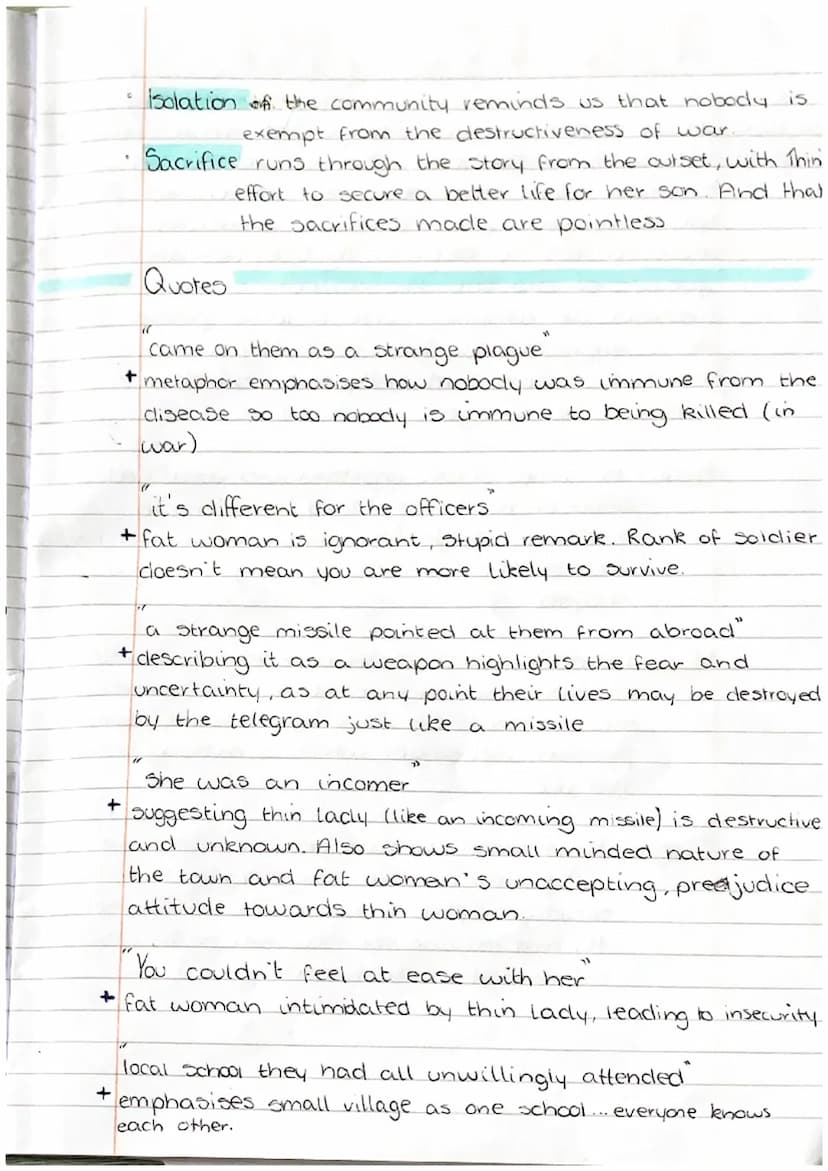 • Isolation of the community reminds us that nobody is
exempt from the destructiveness of war.
• Sacrifice runs through the story from the outset, with Thin
effort to secure a better life for her son. And that
the sacrifices made are pointless
Quotes
"came on them as a strange plague"
+ metaphor emphasises how nobody was immune from the
disease so too nobody is immune to being killed (in
war)
"it's different for the officers"
+ fat woman is ignorant, stupid remark. Rank of soldier
doesn't mean you are more likely to survive.
"a strange missile pointed at them from abroad"
+ describing it as a weapon highlights the fear and
uncertainty, as at any point their lives may be destroyed
by the telegram just like a missile
"She was an incomer"
+ suggesting thin lady (like an incoming missile) is destructive
and unknown. Also shows small minded nature of
the town and fat woman's unaccepting, preejudice
attitude towards thin woman.
"You couldn't feel at ease with her"
+ fat woman intimidated by thin lady, leading to insecurity
"local school they had all unwillingly attended"
+ emphasises small village as one school... everyone knows
each other.